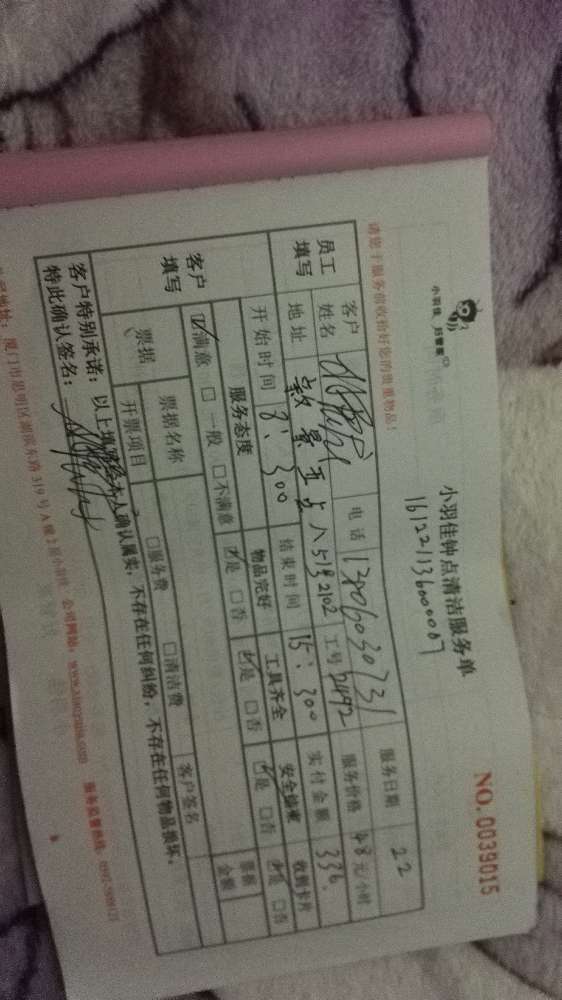 小羽佳 好管家
小羽佳钟点清洁服务单
NO.0039015
161221136000007
请您于服务前收拾好您的贵重物品!
员工填写
客户姓名 电话 13606030731 服务日期 22
地址 51号2102 工号 2492 服务价格 48元/小时
开始时间 8:300 结束时间 15:300 实付金额 336
客户填写
服务态度 物品完好 工具齐全 安全检查 收到卡片
☑满意 □一般 □不满意 ☑是 □否 ☑是 □否 ☑是 □否 ☑是 □否
票据 票据名称 客户签名 票据金额
开票项目 □服务费 □清洁费
客户特别承诺:以上填写经本人确认属实,不存在任何纠纷,不存在任何物品损坏,
特此确认签名:
厦门市思明区湖滨东路319号A幢2层小羽佳 公司网站:www.xiaoyujia.com 服务监督热线: